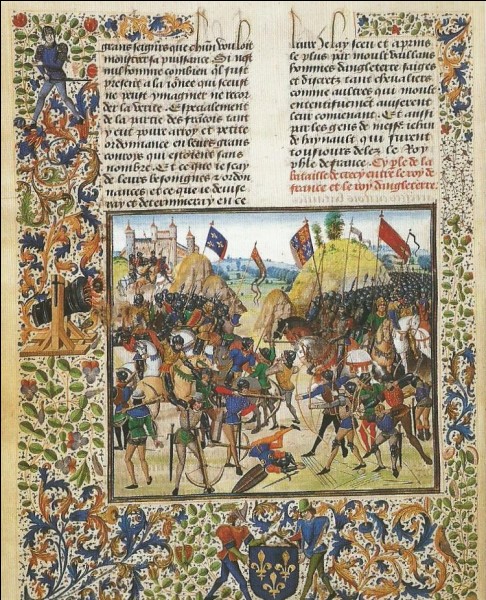 grans seigurs que chun vouloit
monstrer sa puissance Si nest
nul homme combien quil fust
present a la ionee qui sceust
ne peust ymaginer ne recor
der la verite. Especialement
de la partie des francois tant
y eut poure arroy et petite
ordonnance en leurs grans
conrois qui estoient sans
nombre. Et ce que ie scay
de leurs besongnes & ordon
nances et ce que ie deuise
ray et determineray en ce
liure Je lay sceu et aprins
le plus par moult vaillans
hommes dangleterre saiges
et discrets tant cheualiers
comme aultres qui moult
ententifuement auiserent
leur conuenant. Et aussi
par les gens de messe. iehan
de haynault qui furent
tousiours delez le Roy
phle de france. Cy ple de la
bataille de crecy entre le roy de
france et le roy dangleterre.